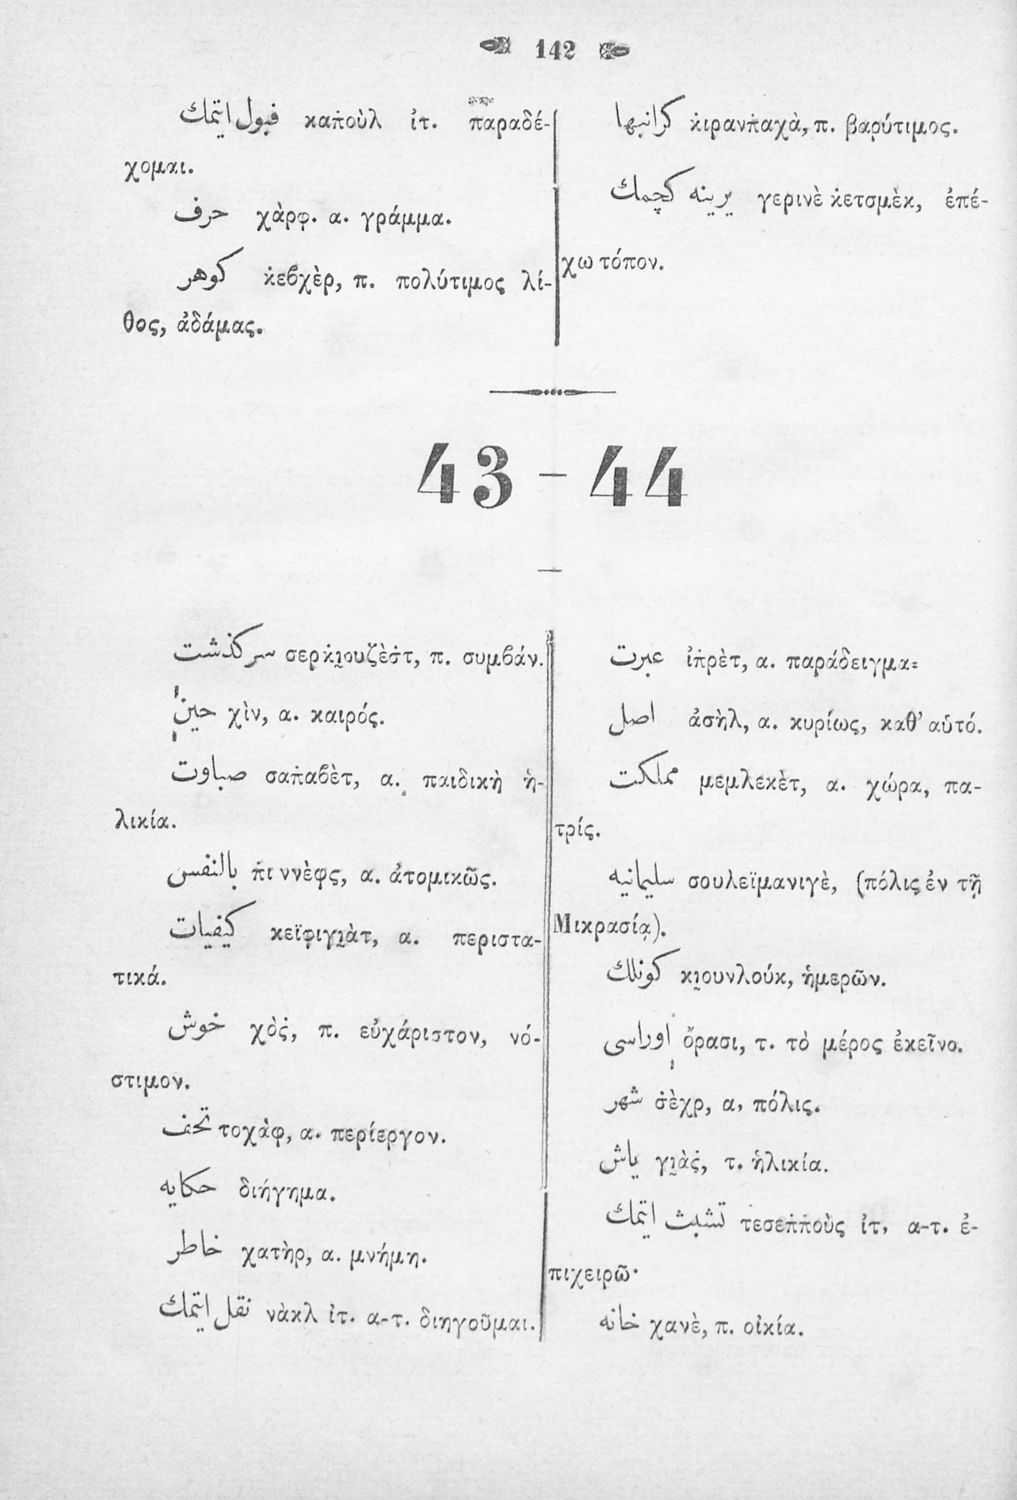 142
قبول ایتمك καπ̇οὺλ ἰτ. παραδέ-
χομαι.
حرف χὰρφ. α. γράμμα.
كوهر κ̇εβχὲρ, π. πολύτιμος λί-
θος, ἀδάμας.
كرانبها κ̇ιρανπ̇αχὰ, π. βαρύτιμος.
يرينه كچمك γερινὲ κ̇ετσμὲκ, ἐπέ-
χω τόπον.
43 - 44
سركذشت σερκ̇ι̮ουζὲσ̇τ, π. συμβάν.
حين χὶν, α. καιρός.
صباوت σαπ̇αβὲτ, α. παιδικὴ ἡ-
λικία.
بالنفس π̇ι ννὲφς, α. ἀτομικῶς.
كيفيات κεϊφιγι̮ὰτ, α. περιστα-
τικά.
خوش χὸς̇, π. εὐχάριστον, νό-
στιμον.
تحف τοχὰφ, α. περίεργον.
حكايه διήγημα.
خاطر χατὴρ, α. μνήμη.
نقل ایتمك νὰκλ ἰτ. α-τ. διηγοῦμαι.
عبرت ἰπ̇ρὲτ, α. παράδειγμα=
اصل ἀσὴλ, α. κυρίως, καθ’ αὑτό.
مملكت μεμλεκὲτ, α. χώρα, πα-
τρίς.
سليمانيه σουλεϊμανιγὲ, (πόλις ἐν τῇ
Μικρασίᾳ).
كونلك κι̮ουνλούκ, ἡμερῶν.
اوراسى ὄρασι, τ. τὸ μέρος ἐκεῖνο.
شهر σ̇ὲχρ, α, πόλις.
ياش γι̮ὰς̇, τ. ἡλικία.
تشبث ایتمك τεσεπ̇π̇οὺς ἰτ, α-τ. ἐ-
πιχειρῶ·
خانه χανὲ, π. οἰκία.